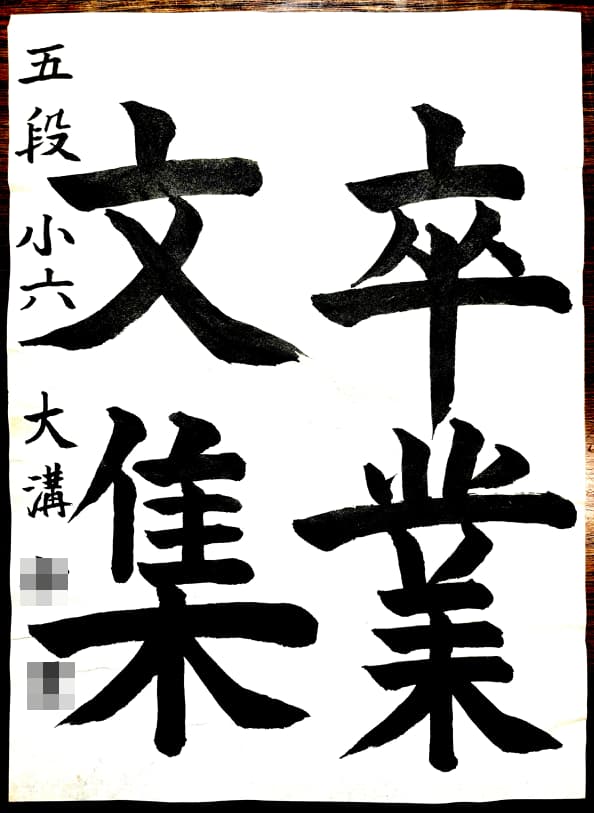 卒業
文集
五段 小六 大溝